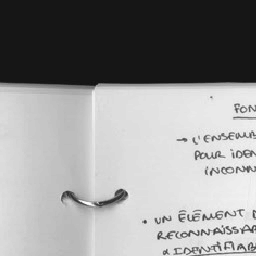 FON
→ L'ENSEMB
POUR IDEN
INCONN
• UN ÉLÉMENT
RECONNAISSA
& IDENTIFIAB